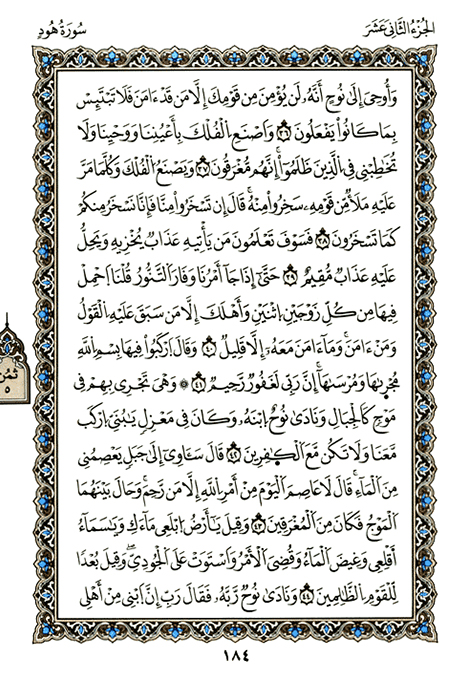 الجُزْءُ الثَّانِي عَشَرَ
سُورَةُ هُودٍ
وَأُوحِيَ إِلَىٰ نُوحٍ أَنَّهُۥ لَن يُؤْمِنَ مِن قَوْمِكَ إِلَّا مَن قَدْ ءَامَنَ فَلَا تَبْتَئِسْ
بِمَا كَانُواْ يَفْعَلُونَ ٣٦ وَاصْنَعِ الْفُلْكَ بِأَعْيُنِنَا وَوَحْيِنَا وَلَا
تُخَٰطِبْنِي فِي الَّذِينَ ظَلَمُواْ إِنَّهُم مُّغْرَقُونَ ٣٧ وَيَصْنَعُ الْفُلْكَ وَكُلَّمَا مَرَّ
عَلَيْهِ مَلَأٌ مِّن قَوْمِهِۦ سَخِرُواْ مِنْهُ قَالَ إِن تَسْخَرُواْ مِنَّا فَإِنَّا نَسْخَرُ مِنكُمْ
كَمَا تَسْخَرُونَ ٣٨ فَسَوْفَ تَعْلَمُونَ مَن يَأْتِيهِ عَذَابٌ يُخْزِيهِ وَيَحِلُّ
عَلَيْهِ عَذَابٌ مُّقِيمٌ ٣٩ حَتَّىٰ إِذَا جَا أَمْرُنَا وَفَارَ التَّنُّورُ قُلْنَا احْمِلْ
فِيهَا مِن كُلِّ زَوْجَيْنِ اثْنَيْنِ وَأَهْلَكَ إِلَّا مَن سَبَقَ عَلَيْهِ الْقَوْلُ
وَمَنْ ءَامَنَ وَمَا ءَامَنَ مَعَهُۥ إِلَّا قَلِيلٌ ٤٠ وَقَالَ ارْكَبُواْ فِيهَا بِسْمِ اللَّهِ
مُجْر۪ىٰهَا وَمُرْسَىٰهَا إِنَّ رَبِّي لَغَفُورٌ رَّحِيمٌ ٤١ ۞ وَهْيَ تَجْرِي بِهِمْ فِي
مَوْجٍ كَالْجِبَالِ وَنَادَىٰ نُوحٌ ابْنَهُۥ وَكَانَ فِي مَعْزِلٍ يَٰبُنَيِّ ارْكَب
مَّعَنَا وَلَا تَكُن مَّعَ الْكَٰفِرِينَ ٤٢ قَالَ سَـَٔاوِي إِلَىٰ جَبَلٍ يَعْصِمُنِي
مِنَ الْمَاءِ قَالَ لَا عَاصِمَ الْيَوْمَ مِنْ أَمْرِ اللَّهِ إِلَّا مَن رَّحِمَ وَحَالَ بَيْنَهُمَا
الْمَوْجُ فَكَانَ مِنَ الْمُغْرَقِينَ ٤٣ وَقِيلَ يَٰأَرْضُ ابْلَعِي مَاءَكِ وَيَٰسَمَاءُ
أَقْلِعِي وَغِيضَ الْمَاءُ وَقُضِيَ الْأَمْرُ وَاسْتَوَتْ عَلَى الْجُودِيِّ وَقِيلَ بُعْدًا
لِّلْقَوْمِ الظَّٰلِمِينَ ٤٤ وَنَادَىٰ نُوحٌ رَّبَّهُۥ فَقَالَ رَبِّ إِنَّ ابْنِي مِنْ أَهْلِي
١٨٤